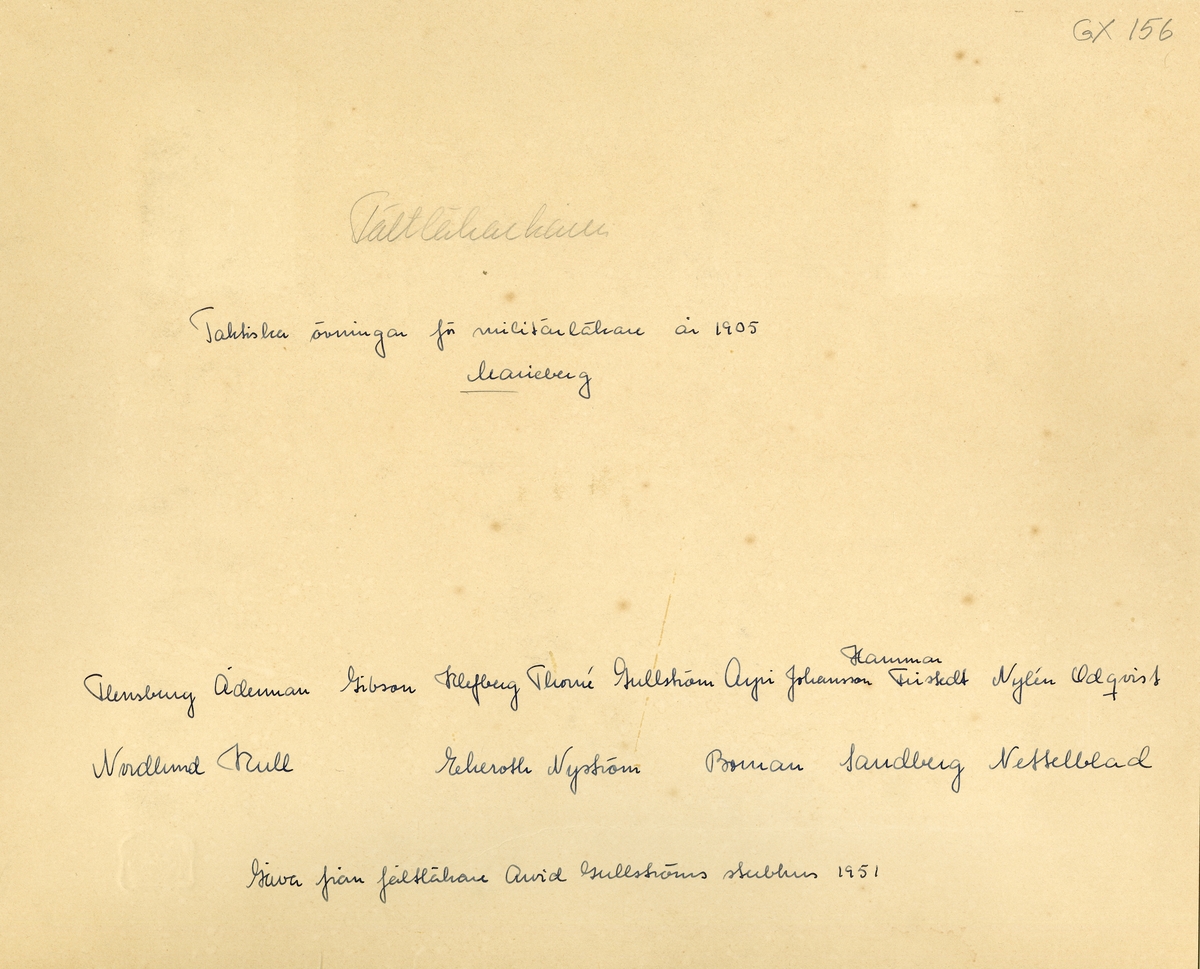 GX 156
Fältläkarkåren
Taktiska övningar för militärläkare år 1905
Marieberg
Hammar
Flensburg Åderman Gibson Klefberg Thomé Gullström Ayri Johansson Fristedt Nylén Odqvist
Nordlund Kull Ekeroth Nyström Boman Sandberg Nettelblad
Gåva från fältläkare Arvid Gullströms sterbhus 1951